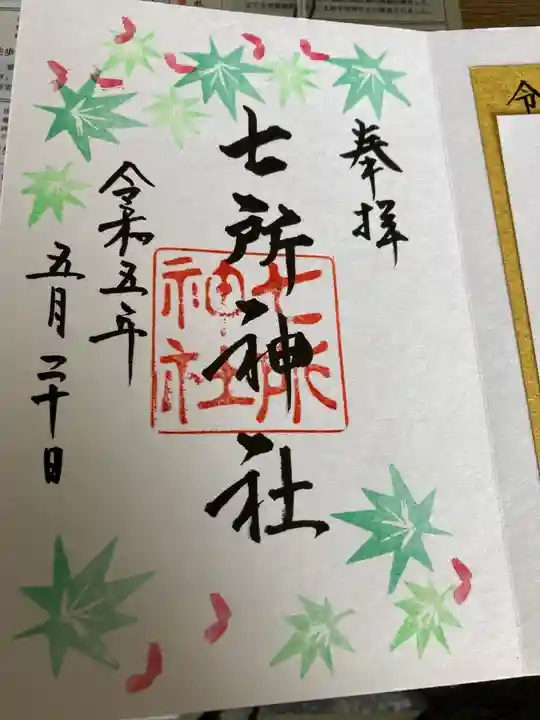 奉拝
七所神社
七所
神社
令和五年
五月二十日
令